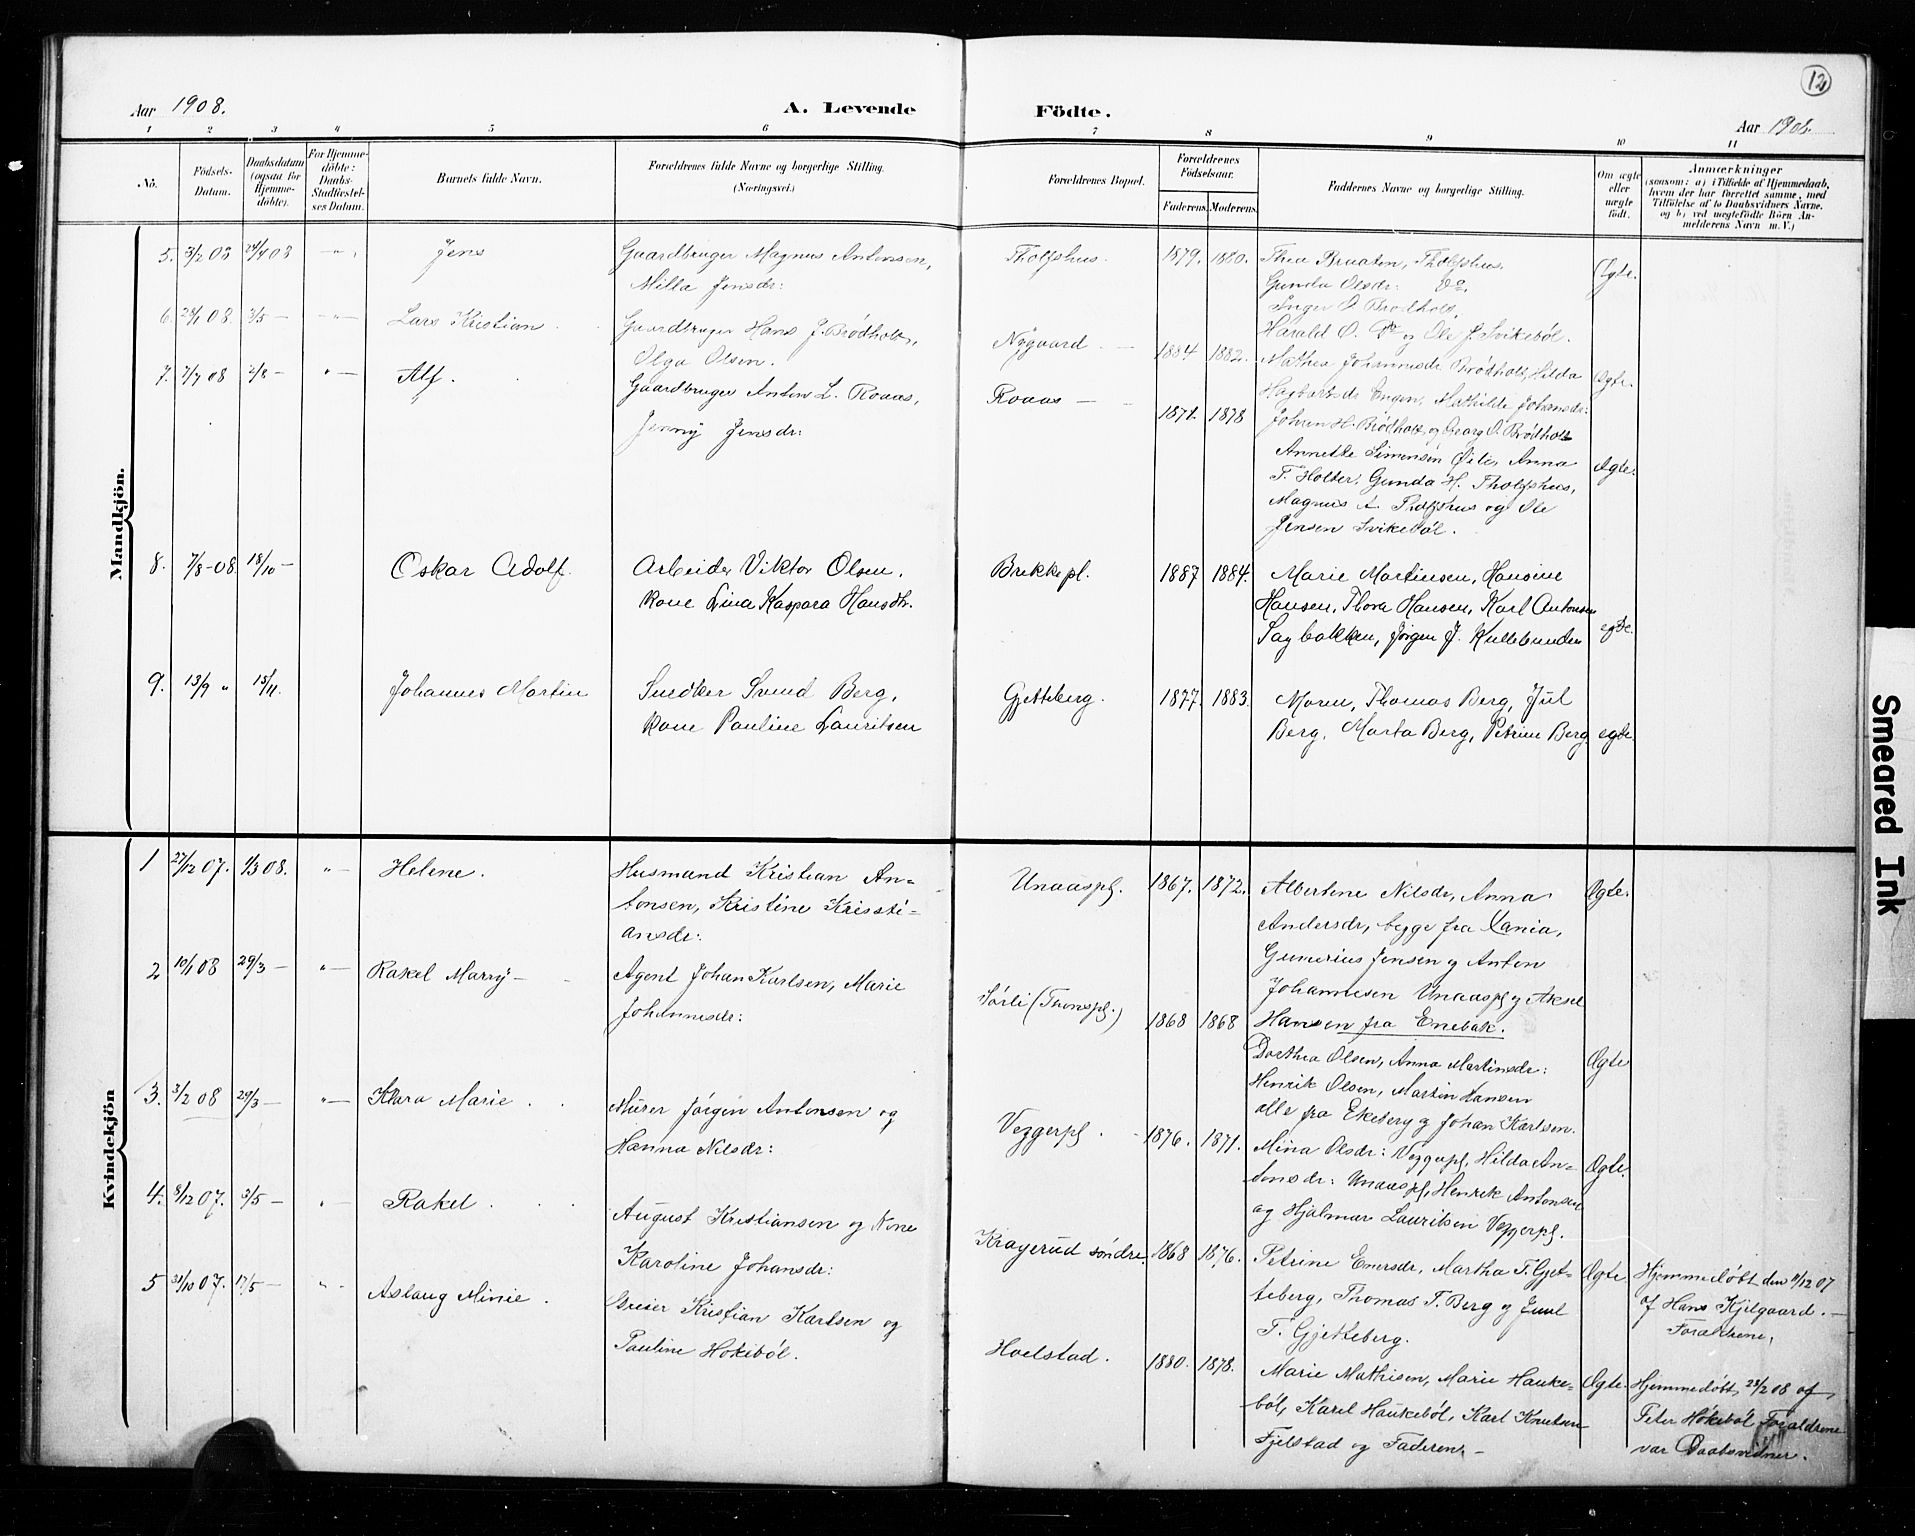 12
Aar 1908.
A. Levende
Födte.
Aar 1908.
1 2 3 4 5 6 7 8 9 10 11
No.
Födsels-
Datum.
Daabsdatum
(ogsaa for
Hjemme-
döbte).
For Hjemme-
döbte:
Daabs-
Stadfæstel-
ses Datum.
Barnets fulde Navn.
Forældrenes fulde Navne og borgerlige Stilling.
(Næringsvei.)
Forældrenes Bopæl.
Forældrenes
Födselsaar.
Faderens. Moderens.
Faddernes Navne og borgerlige Stilling.
Om ægte
eller
uægte
født.
Anmærkninger
(saasom: a) i Tilfælde af Hjemmedaab,
hvem der har forrettet samme, med
Tilföielse af to Daabsvidners Navne,
og b) ved uægtefödte Börn An-
melderens Navn m. V.)
Mandkjön.
5. 3/2 08 24/4 08 - " -
Jens
Gaardbruger Magnus Antonsen,
Milla Jensdr:
Tholfshus.
1879. 1880.
Thea Braaten, Tholfshus.
Gunda Olsdr: Do.
Inger O Brødholt,
Harald O. Do og Ole J. Svikebøl.
Ægte.
6. 29/1 08. 3/5 - - " -
Lars Kristian
Gaardbruger Hans J. Brødholt,
Olga Olsen.
Nygaard.
1884 1882.
Mathea Johannesdr Brødholt, Hilda
Hagbartsdr Engen, Mathilde Johansdr:
Johan H. Brødholt og Georg O. Brødholt
Ægte.
7. 7/7 08 2/8 - " -
Alf.
Gaardbruger Anton L. Roaas,
Jenny Jensdr:
Roaas -
1871. 1878
Annette Simensen Østey Anna
T. Holter, Gunda H. Tholfshus,
Magnus A Tholfshus og Ole
Jensen Svikebøl.
Ægte.
8. 7/8-08. 18/10 -
Oskar Adolf.
Arbeider Viktor Olsen,
kone Lina Kaspara Hansdtr.
Brekkepl.
1887 1884.
Marie Martinsen, Hansine
Hansen, Thora Hansen, Karl Antonsen
Sagbakken, Jørgen J. Kullebunden
egte.
9. 13/9 " 15/11.
Johannes Martin
Snedker Svend Berg,
kone Pauline Lauritsen
Gjetteberg.
1877. 1883.
Moren, Thomas Berg, Jul
Berg, Marta Berg, Petrine Berg
egte.
Kvindekjön
1 27/12 07. 1/3 08. " -
Helene.
Husmand Kristian An=
tonsen, Kristine Kristi=
ansdr:
Unaaspl.
1867. 1872.
Albertine Nilsdr, Anna
Andersdr, begge fra Xania,
Gunerius Jensen og Anton
Johannesen Unaaspl og Aksel
Hansen fra Enebak.
Ægte.
2 10/1 08 29/3 - " -
Rakel Marry -
Agent Johan Karlsen, Marie
Johannesdr:
Sørli (Thonspl.)
1868 1868
Dorthea Olsen, Anna Martinsdr:
Henrik Olsen, Martin Hansen
alle fra Ekeberg og Johan Karlsen.
Ægte
3. 3/2 08 29/3 - " -
Klara Marie.
Murer Jørgen Antonsen og
Hanna Nilsdr:
Veggerpl.
1876. 1871.
Mina Olsdr: Veggerpl, Hilda An=
tonsdr: Unaaspl, Henrik Antonsen
og Hjalmar Lauritsen Veggerpl.
Ægte.
4. 8/12 07. 3/5 - " -
Rakel
August Kristiansen og Kone
Karoline Johansdr:
Kragerud søndre.
1868 1876.
Petrine Enersdr, Martha T. Gjet=
teberg, Thomas T. Berg og Juul
T. Gjetteberg.
Ægte
Hjemmedøbt den 11/12 07
af Hans Kjelgaard. -
Forældrene.
5 31/10 07. 17/5 - " -
Aslaug Minie.
Eier Kristian Karlsen og
Pauline Høkebøl.
Hoelstad.
1880. 1878.
Marie Mathisen, Marie Hauke=
bøl, Karel Haukebøl, Karl Knutsen
Fjelstad og Faderen. -
Ægte.
Hjemmedøbt, 23/2 08 af
Peter Høkebøl Forældrene
var Daabsvidner.
Smeared Ink